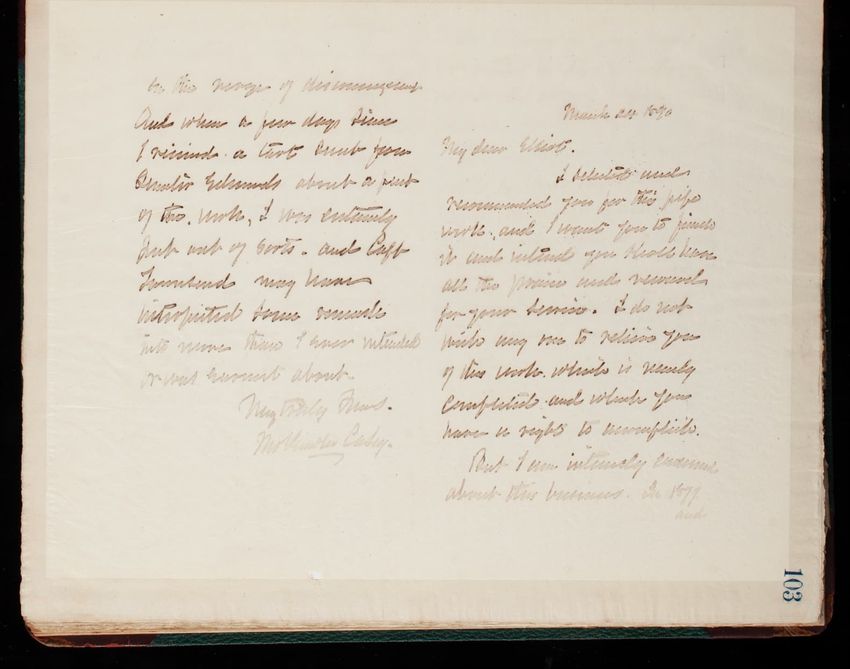 March 24 1890
My dear Elliot.
I selected and
recommended you for the pipe
work, and I want you to finish
it and intend you shall have
all the praise and reward
for your service. I do not
wish any one to relieve you
of this work which is nearly
completed and which you
have a right to accomplish.
But I am intensely
about this business. In 1879
and
on the verge of discouragement
And when a few days since
I received a tart sent from
Senator Edmunds about a part
of the work, I was entirely
put out of sorts. and Capt
Townsend may have
interpreted some remark
into more than I ever intended
or was earnest about.
Very truly Yours.
Thos Lincoln Casey.
103